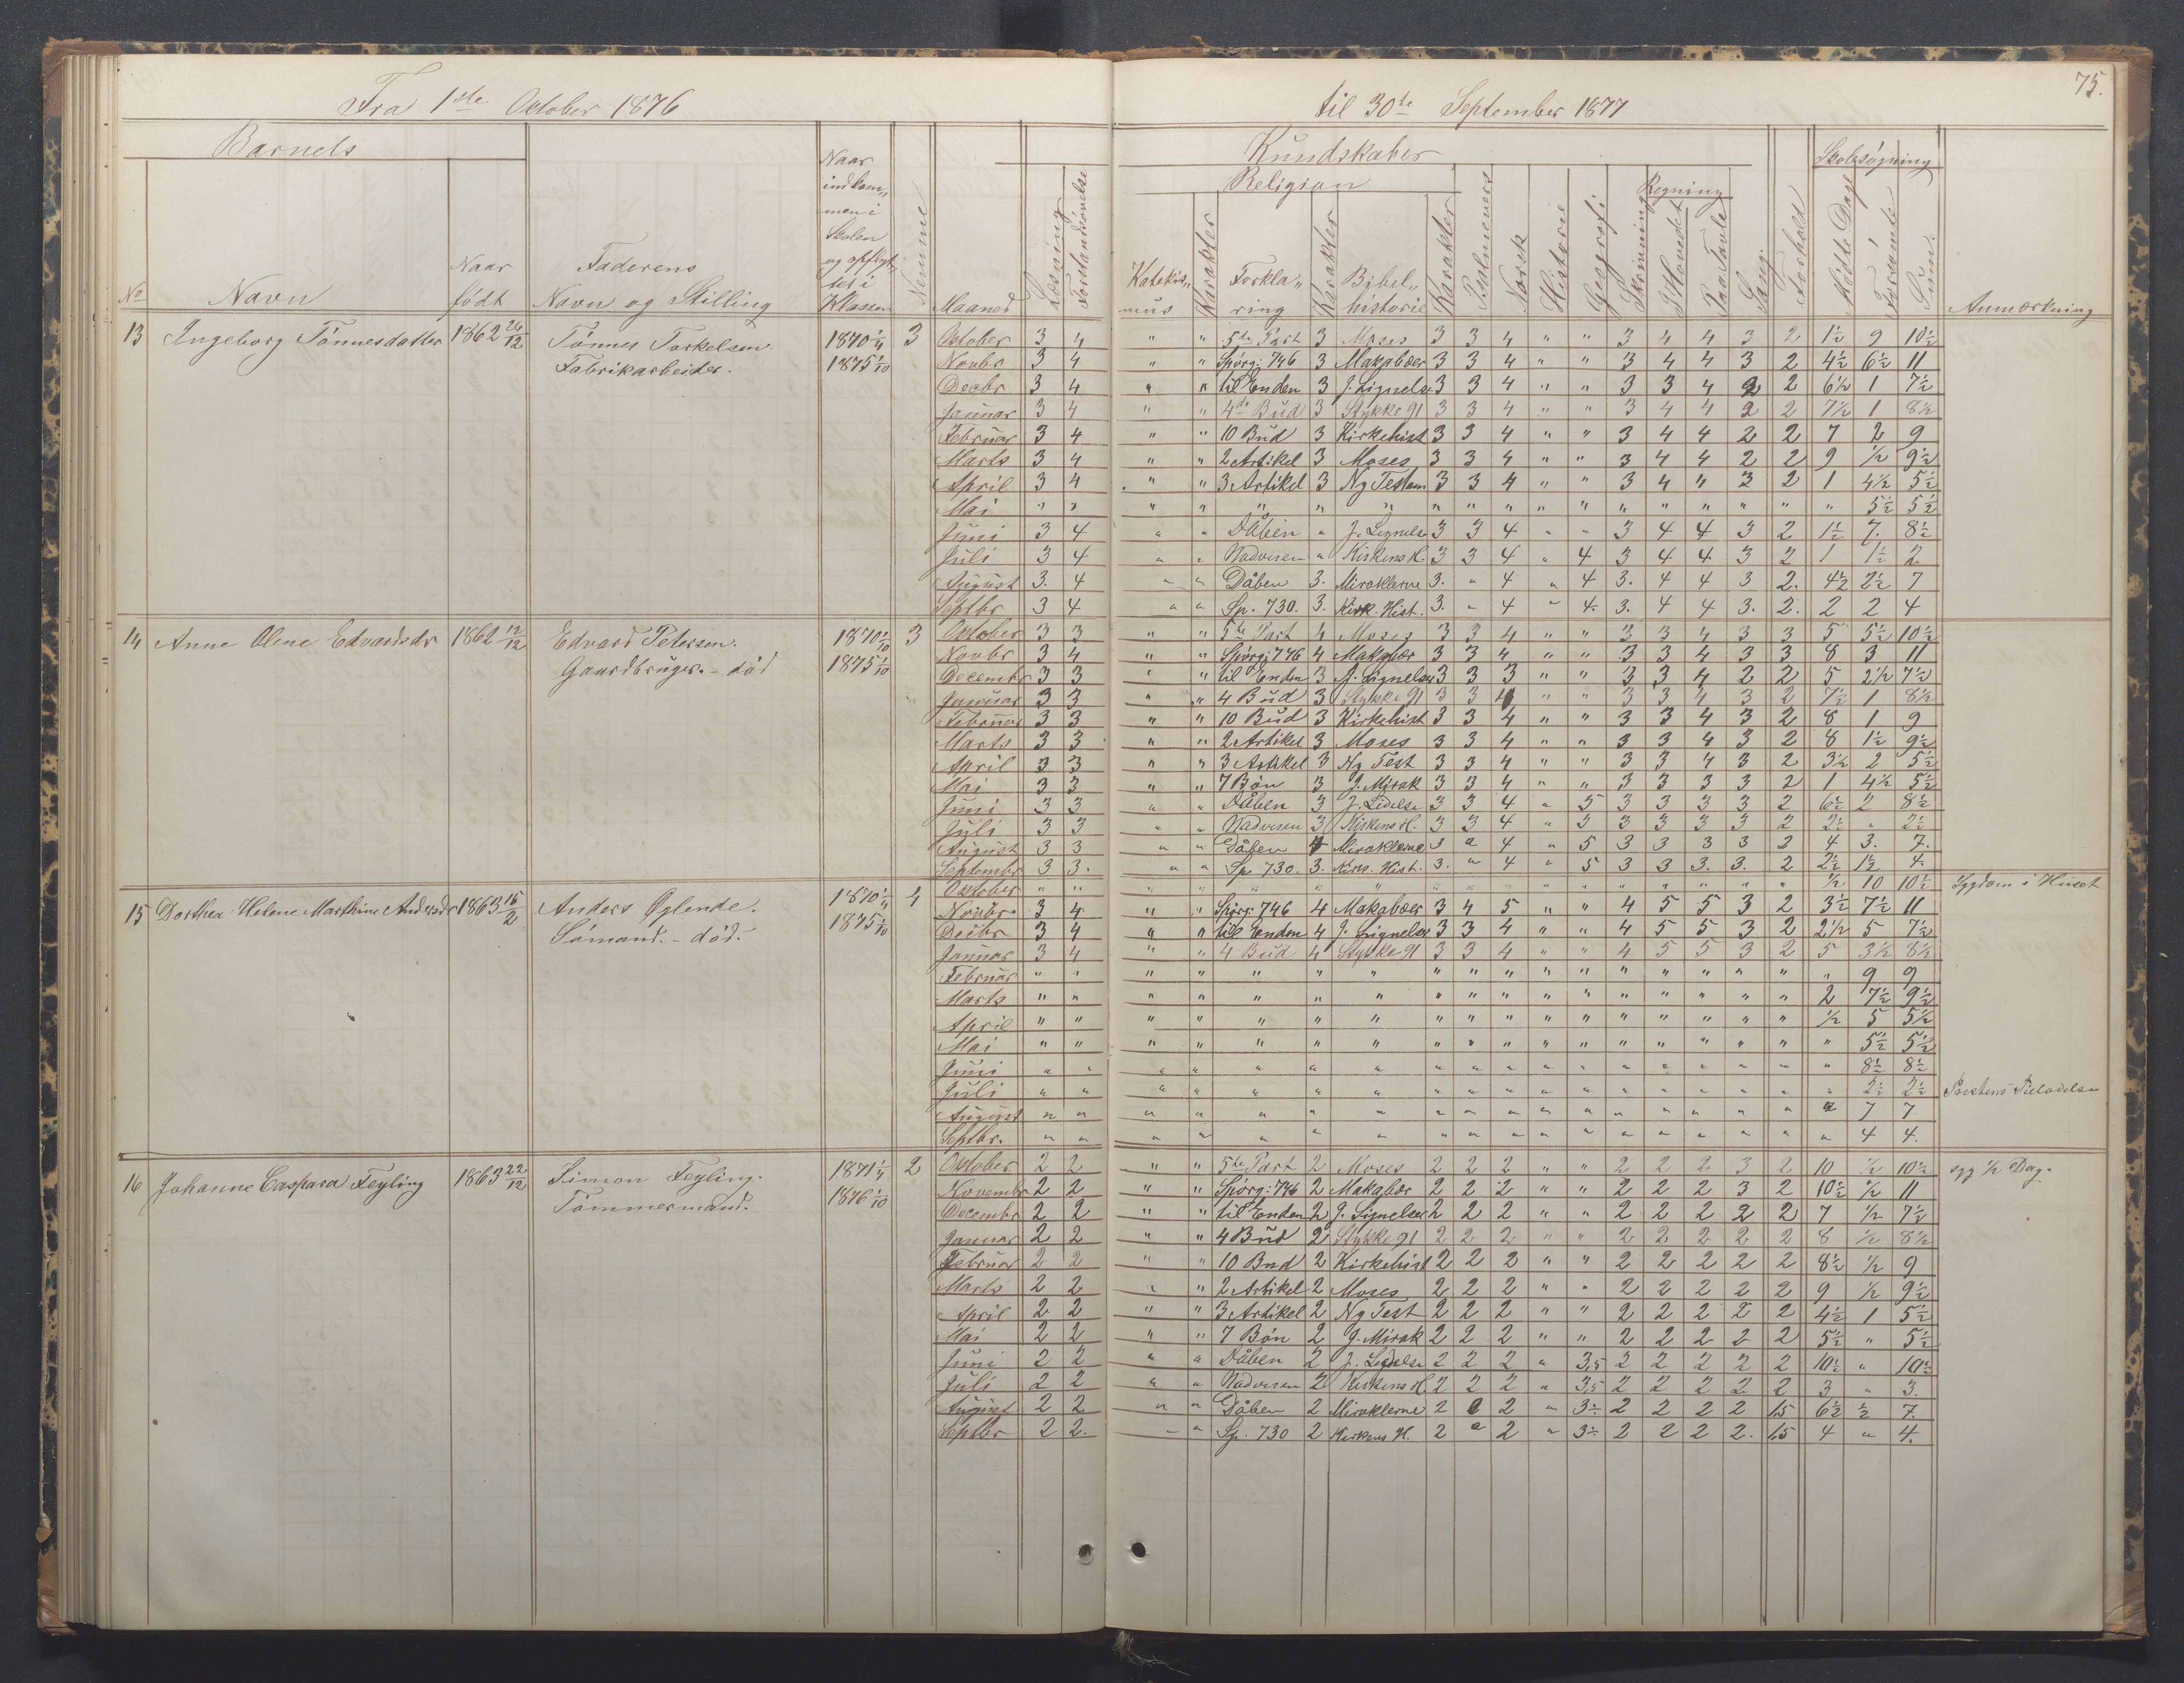 75.
Fra 1ste October 1876 til 30te September 1877
Barnets Kundskaber Skolesøgning
Religion Regning
No Navn Naar født Faderens Navn og Stilling Naar indkommen i Skolen og opflyttet i Klassen Nemme Maaned Læsning Forstandsøvelse Katekismus Karakter Forklaring Karakter Bibelhistorie Karakter Psalmevers Norsk Historie Geografi Skrivning I Hovedet Paa Tavle Sang Forhold Mødte Dage Forsømte Sum. Anmærkning
13 Ingeborg Tønnesdatter 1862 24/12 Tønnes Torkelsen. 1870 1/4 3 October 3 4 " " 5te Part 3 Moses 3 3 4 " " 3 4 4 3 2 1½ 9 10½
Fabrikarbeider. 1875 1/10 Novbr 3 4 " " Spørg: 746 3 Makabæer 3 3 4 " " 3 4 4 3 2 4½ 6½ 11
Decbr 3 4 " " til Enden 3 J. Lignelse 3 3 4 " " 3 3 4 2 2 6½ 1 7½
Januar 3 4 " " 4de Bud 3 Stykke 91 3 3 4 " " 3 4 4 2 2 7½ 1 8½
Februar 3 4 " " 10 Bud 3 Kirkehist 3 3 4 " " 3 4 4 2 2 7 2 9
Marts 3 4 " " 2 Artikel 3 Moses 3 3 4 " " 3 4 4 2 2 9 ½ 9½
April 3 4 " " 3 Artikel 3 Ny Testam 3 3 4 " " 3 4 " 3 2 1 4½ 5½
Mai " " " " " " " " " " " " " " " " " " 5½ 5½
Juni 3 4 " " Dåben " J. Lignelse 3 3 4 " " 3 4 4 3 2 1½ 7. 8½
Juli 3 4 " " Nadveren " Kirkens H. 3 3 4 " 4 3 4 4 3 2 1 1½ 2
August 3. 4 " " Dåben 3. Miraklerne 3. " 4 " 4 3. 4 4 3 2. 4½ 2½ 7
Septbr 3 4 " " Sp. 730. 3. Kirk. Hist. 3. " 4 " 4. 3. 4 4 3. 2. 2 2 4
14 Anne Oline Edvardsdr 1862 12/12 Edvard Petersen. 1870 1/10 3 Oktober 3 3 " " 5te Part 4 Moses 3 3 4 " " 3 3 4 3 3 5 5½ 10½
Gaardbruger. - død 1875 1/10 Novbr 3 4 " " Spørg: 746 4 Makabær 3 3 4 " " 3 3 4 3 3 8 3 11
Decembr 3 3 " " til Enden 3 J. Lignelse 3 3 3 " " 3 3 4 2 2 5 2½ 7½
Januar 3 3 " " 4 Bud 3 Stykke 91 3 3 4 " " 3 3 4 3 2 7½ 1 8½
Februar 3 3 " " 10 Bud 3 Kirkehist 3 3 4 " " 3 3 4 3 2 8 1 9
Marts 3 3 " " 2 Artikel 3 Moses 3 3 4 " " 3 3 4 3 2 8 1½ 9½
April 3 3 " " 3 Artikel 3 Ny Test 3 3 4 " " 3 3 4 3 2 3½ 2 5½
Mai 3 3 " " 7 Bøn 3 J. Mirak 3 3 4 " " 3 3 3 3 2 1 4½ 5½
Juni 3 3 " " Dåben 3 J. Lidelse 3 3 4 " 5 3 3 3 3 2 6½ 2 8½
Juli 3 3 " " Nadveren 3 Kirkens H. 3 3 4 " 5 3 3 3 3 2 2½ " 2½
August 3 3 " " Dåben 4 Miraklerne 3 " 4 " 5 3 3 3 3 2 4 3. 7.
Septembr 3 3. " " Sp 730. 3. Kirk. Hist. 3. " 4 " 5 3 3 3. 3. 2 2½ 1½ 4.
15 Dorthea Helene Marthine Andersdr 1863 15/2 Anders Øglende. 1870 1/4 4 Oktober " " " " " " " " " " " " " " " " " ½ 10 10½ Sygdom i Huset
Sømand. - død. 1875 1/10 Novbr. 3 4 " " Spørg: 746 4 Makabæer 3 4 5 " " 4 5 5 3 2 3½ 7½ 11
Decbr 3 4 " " til Enden 4 J. Lignelse 3 3 4 " " 4 5 5 3 2 2½ 5 7½
Januar 3 4 " " 4 Bud 4 Stykke 91 3 3 4 " " 4 5 5 3 2 5 3½ 8½
Februar " " " " " " " " " " " " " " " " " " 9 9
Marts " " " " " " " " " " " " " " " " " 2 7½ 9½
April " " " " " " " " " " " " " " " " " ½ 5 5½
Mai " " " " " " " " " " " " " " " " " " 5½ 5½
Juni " " " " " " " " " " " " " " " " " " 8½ 8½
Juli " " " " " " " " " " " " " " " " " " 2½ 2½ Præstens Tilladelse
August " " " " " " " " " " " " " " " " " " 7 7
Septbr. " " " " " " " " " " " " " " " " " " 4 4.
16 Johanne Caspara Feyling 1863 22/12 Simon Feyling. 1871 1/4 2 Oktober 2 2 " " 5te Part 2 Moses 2 2 2 " " 2 2 2 3 2 10 ½ 10½ syg ½ Dag.
Tømmermand. 1876 1/10 Novembr 2 2 " " Spørg: 746 2 Makabær 2 2 2 " " 2 2 2 3 2 10½ ½ 11
Decembr 2 2 " " til Enden 2 J. Lignelse 2 2 2 " " 2 2 2 2 2 7 ½ 7½
Januar 2 2 " " 4 Bud 2 Stykke 91 2 2 2 " " 2 2 2 2 2 8 ½ 8½
Februar 2 2 " " 10 Bud 2 Kirkehist 2 2 2 " " 2 2 2 2 2 8½ ½ 9
Marts 2 2 " " 2 Artikel 2 Moses 2 2 2 " " 2 2 2 2 2 9 ½ 9½
April 2 2 " " 3 Artikel 2 Ny Test 2 2 2 " " 2 2 2 2 2 4½ 1 5½
Mai 2 2 " " 7 Bøn 2 J. Mirak 2 2 2 " " 2 2 2 2 2 5½ " 5½
Juni 2 2 " " Dåben 2 J. Lidelse 2 2 2 " 3,5 2 2 2 2 2 10½ " 10½
Juli 2 2 " " Nadveren 2 Kirkens H. 2 2 2 " 3,5 2 2 2 2 2 3 " 3.
August 2 2 " " Dåben 2 Miraklerne 2 2 " 3½ 2 2 2 2 1,5 6½ ½ 7.
Septbr 2 2. " " Sp. 730 2 Kirkens H. 2 " 2 " 3½ 2 2 2 2. 1,5 4 " 4.